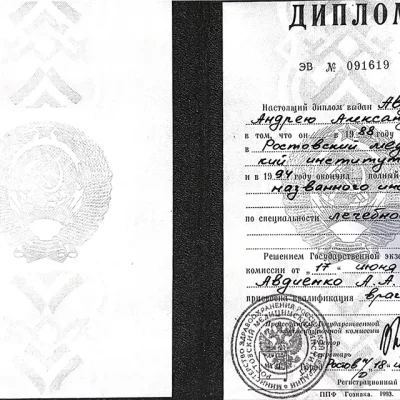 ДИПЛОМ
ЭВ № 091619
Настоящий диплом выдан Ав
Андрею Алексан
в том, что он в 1988
в Ростовский мед
кий институт
и в 1994 году окончил полный
названного ин
по специальности лечебно
Решением Государственной экза
комиссии от "17" июня
Авдиенко А.А.
присвоена квалификация врач
Председатель Государственной
Ректор
Секретарь
Город Ростов 18
Регистрационный
ППФ Гознака. 1993.